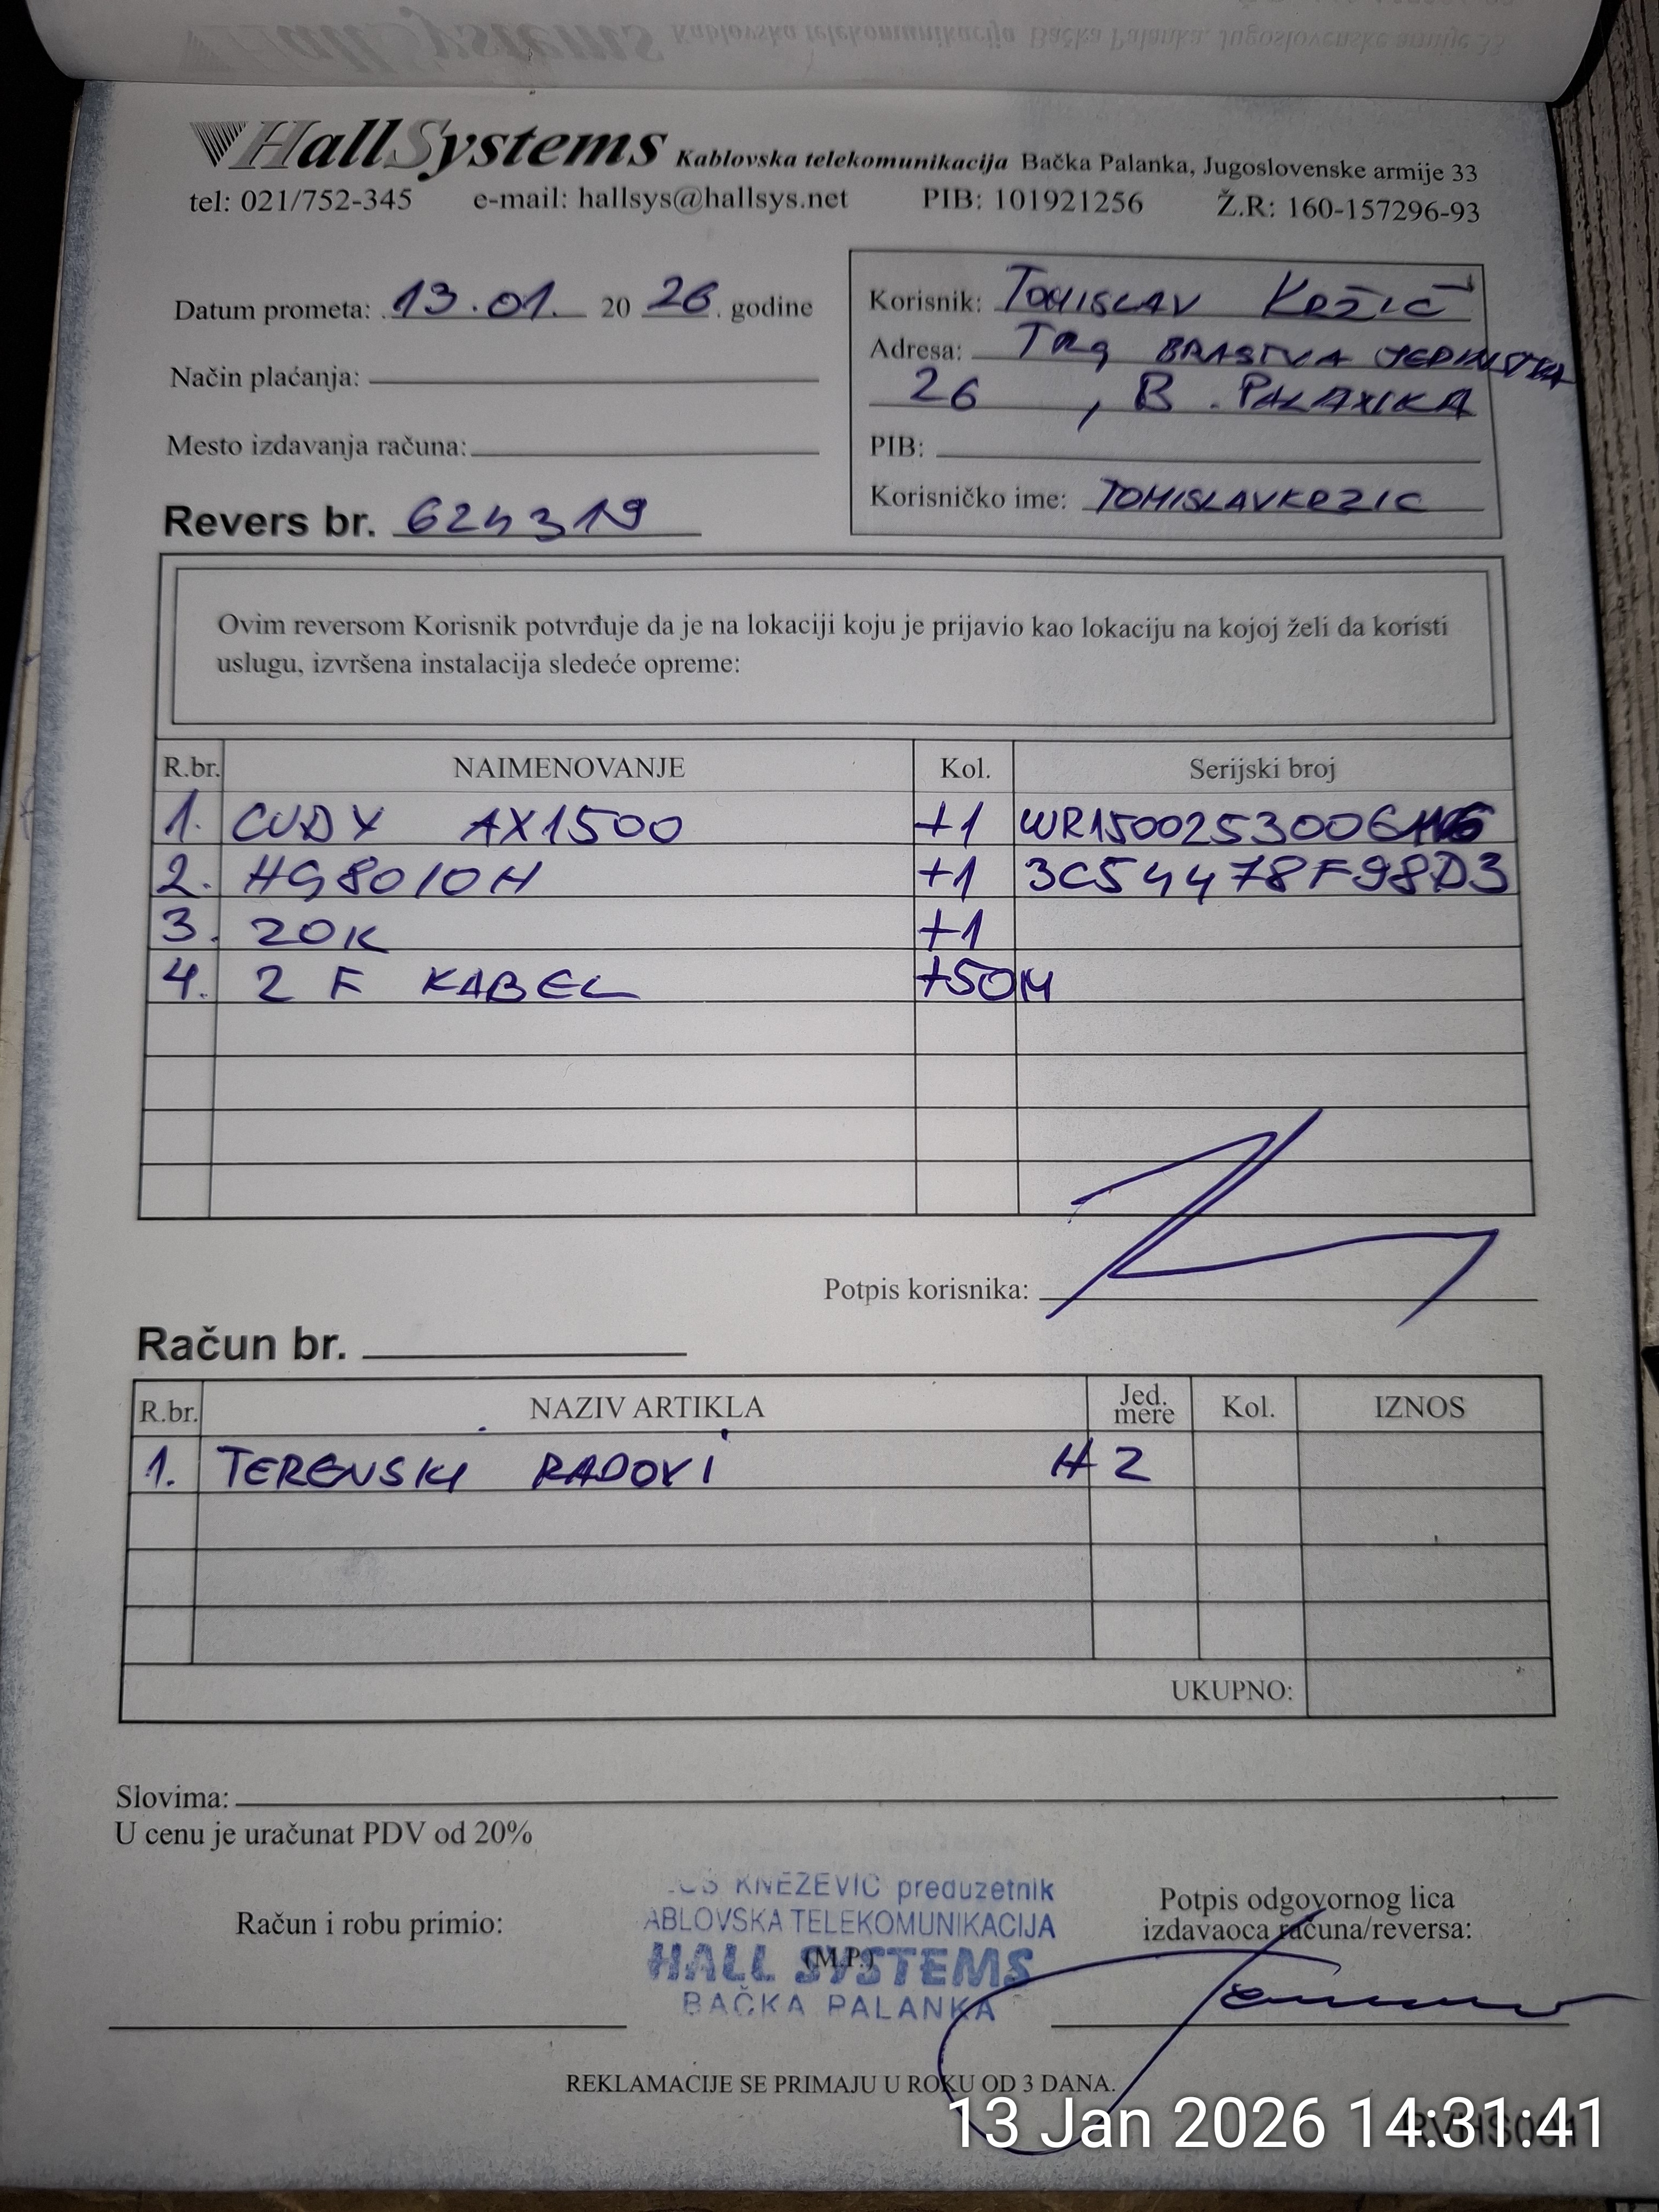 HallSystems Kablovska telekomunikacija Bačka Palanka, Jugoslovenske armije 33
tel: 021/752-345 e-mail: hallsys@hallsys.net PIB: 101921256 Ž.R: 160-157296-93
Datum prometa: 13.01. 2026. godine
Način plaćanja:
Mesto izdavanja računa:
Revers br. 624319
Korisnik: TOMISLAV KRŽIĆ
Adresa: TRg BRASTVA JEDINSTVA
26, B. PALANKA
PIB:
Korisničko ime: TOMISLAVKRZIC
Ovim reversom Korisnik potvrđuje da je na lokaciji koju je prijavio kao lokaciju na kojoj želi da koristi
uslugu, izvršena instalacija sledeće opreme:
R.br. NAIMENOVANJE Kol. Serijski broj
1. CUDY AX1500 +1
2. HG8010H +1 3C54478F98D3
3. ZOK +1
4. 2 F KABEL +50M
Potpis korisnika:
Račun br.
R.br. NAZIV ARTIKLA Jed. mere Kol. IZNOS
1. TERENSKI RADOVI H 2
UKUPNO:
Slovima:
U cenu je uračunat PDV od 20%
Račun i robu primio:
KNEZEVIC preduzetnik
ABLOVSKA TELEKOMUNIKACIJA
(M.P.)
HALL SYSTEMS
BAČKA PALANKA
Potpis odgovornog lica
izdavaoca računa/reversa:
REKLAMACIJE SE PRIMAJU U ROKU OD 3 DANA.
13 Jan 2026 14:31:41